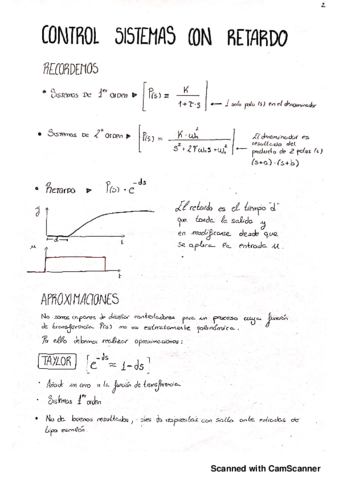 2
CONTROL SISTEMAS CON RETARDO
RECORDEMOS
• Sistemas de 1er orden ▶ [P(s) = K / (1+τ·s)] ← 1 solo polo (s) en el denominador
• Sistemas de 2º orden ▶ [P(s) = K·ωn² / (s²+2ζωn s+ωn²)] ← El denominador es
resultado del
producto de 2 polos (s)
(s+a)·(s+b)
• Retardo ▶ P(s)·e^-ds
El retardo es el tiempo "d"
que tarda la salida y
en modificarse desde que
se aplica la entrada u.
y
d
t
u
t
APROXIMACIONES
No somos capaces de diseñar controladores para un proceso cuya función
de transferencia P(s) no es estrictamente polinómica.
Por ello debemos realizar aproximaciones:
TAYLOR [e^-ds = 1-ds]
• Añade un cero a la función de transferencia.
• Sistemas 1er orden
• No da buenos resultados, respuestas con salto ante entradas de
tipo escalón.
Scanned with CamScanner